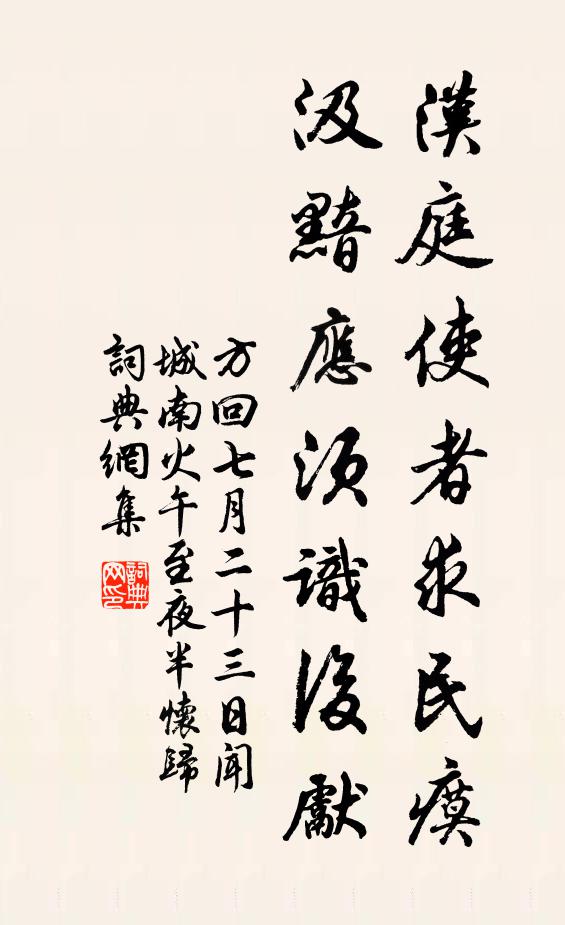 漢庭使者求民瘼
汲黯應須識後獻
方回七月二十三日聞
城南火午至夜半懷歸
詞典網集
詞典网印